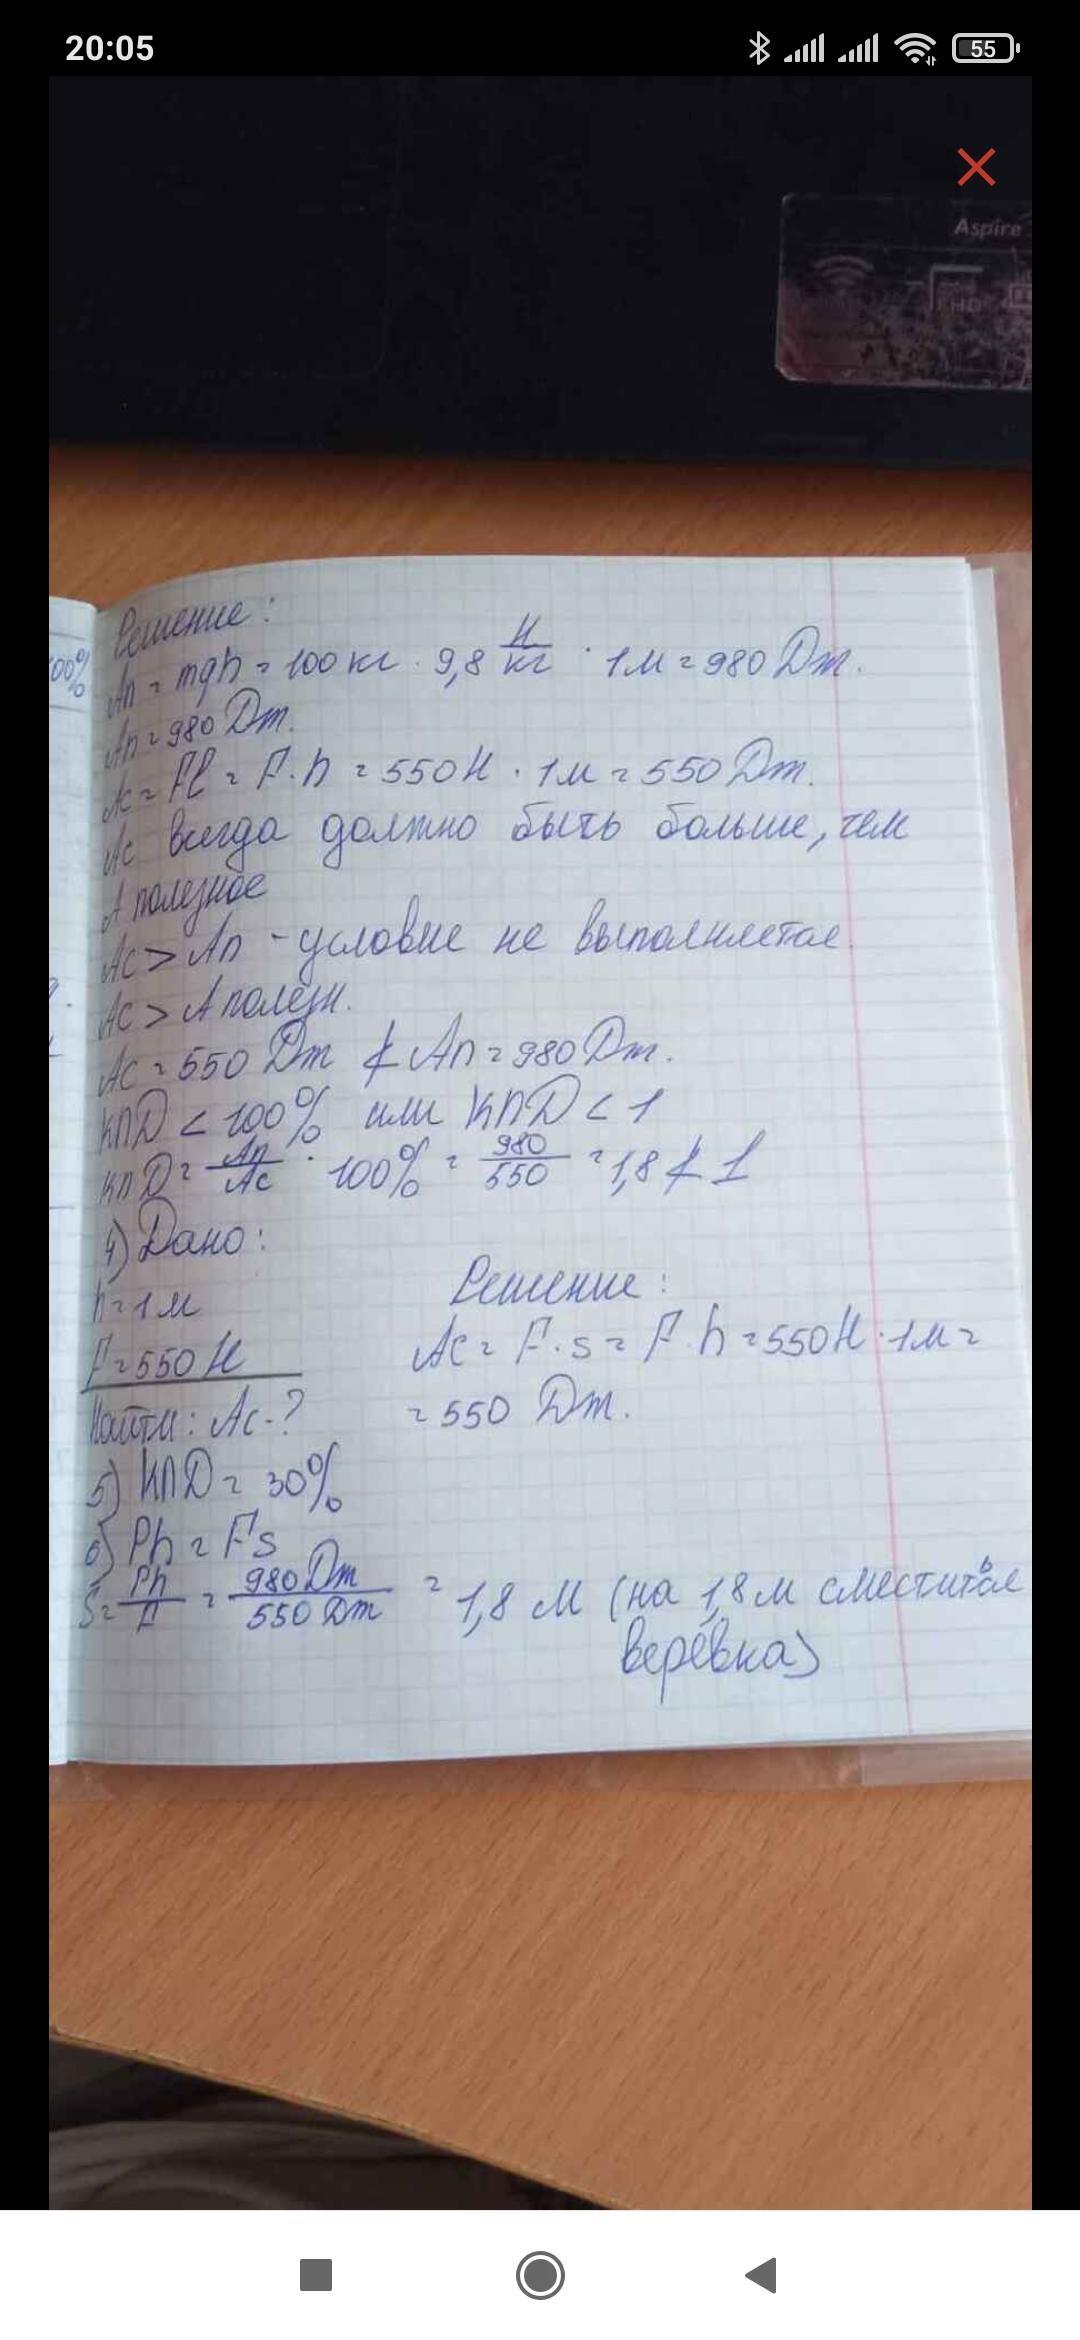 20:05
55
Aspire
HD
Решение:
00%
Ап = mgh = 100 кг · 9,8 Н/кг · 1м = 980 Дж.
Ап = 980 Дж.
Ас = Fl = F·h = 550Н · 1м = 550 Дж.
Ас всегда должно быть больше, чем
А полезное
Ас > Ап - условие не выполняется
Ас > А полезн.
Ас = 550 Дж ≮ Ап = 980 Дж.
КПД < 100% или КПД < 1
КПД = Ап/Ас · 100% = 980/550 = 1,8 ≮ 1
4) Дано:
h = 1м
F = 550 Н
Найти: Ас - ?
Решение:
Ас = F·s = F·h = 550Н·1м =
= 550 Дж.
5) КПД = 30%
6) Ph = Fs
S = Ph/F = 980 Дж/550 Дж = 1,8 м (на 1,8 м сместиться
верёвка)